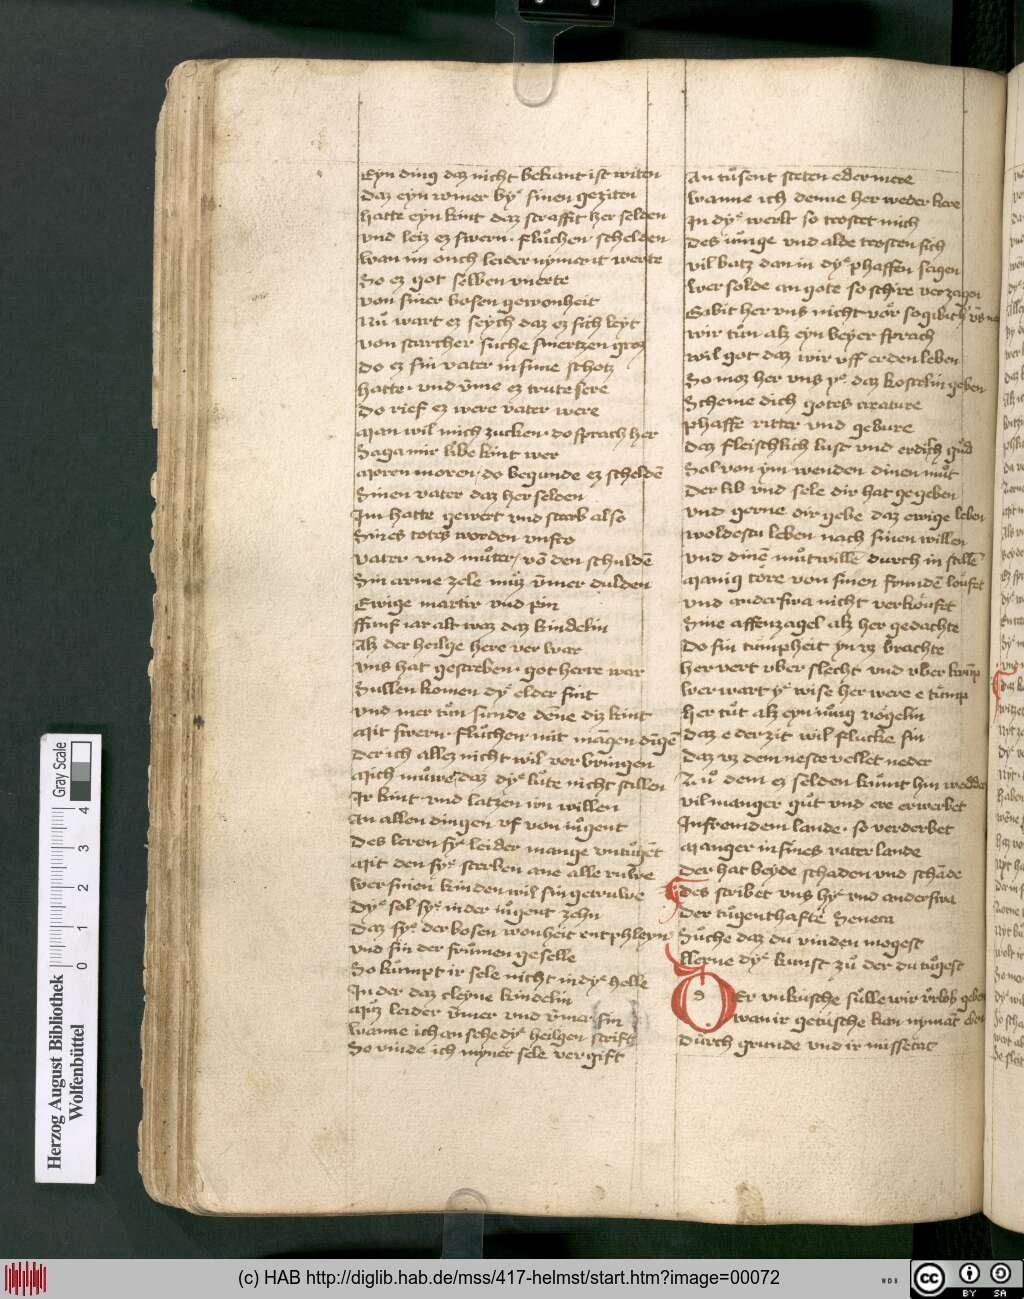 Eyn ding daz nicht bekant ist witen
Daz eyn winer by sinen geziten
Hatte eyn kint daz straffit her selden
Vnd leiz ez swern fluͦchen schelden
Wan im ouch leider nyman it werte
So ez got selben vnerte
Von siner bosen gewonheit
Nuͦ wart ez seych daz ez sich leyt
Von starcher suche smertzen groz
Do ez sin vater in sime schotz
Hatte vnd vme ez trute sere
Do rief ez were vater were
Man wil mich zucken do sprach her
Saga mir libe kint wer
Moren moren do begunde ez scheldē
Sinen vater daz her selden
Im hatte gewert vnd starb also
Sines totes worden vnfro
Vater vnd muͦter vō den schuldē
Sin arme zele muͦz v̄mer dulden
Ewige martir vnd pin
ffimf iar alt waz daz kindelin
Alz der heilge here ver war
Vns hat gescreben got herre war
Sullen komen dy elder sint
Vnd mer tuͦn sunde dēne diz kint
Mit swern fluͦchen mit māgen dingē
Der ich allez nicht wil vor bringen
Mich muͦwe daz dy luͦte nicht stillen
Ir kint vnd latzen im willen
An allen dingen vf von iuͦgent
Des leren sy leider mange vntuͦgēt
Mit den sy sterben ane alle ruͦwe
Wer sinen kinden wil sin getruwe
Dy sol sy in der iuͦgent zehn
Daz sy der bosen wonheit entphleyn
Vnd sin der fruͦmen geselle
So kuͦmpt ir sele nicht in dy helle
In der daz cleyne kindelin
Muͦz leider v̄mer vnd v̄mer sin
Wanne ich an sehe dy heilgen scrift
So vinde ich myner sele vergift
An tuͦsent steten eder mere
Wanne ich denne her weder kere
In dy werlt so trostet mich
Des iuͦnge vnd alde trosten sich
Vil batz dan in dy phaffen sagen
Wer solde an gote so schire verzagen
Gabit her vns nicht vor so gibith
Wir tuͦn alz eyn beyer sprach
Wil got daz wir vff erden leben
So moz her vns y daz kostelin geben
Scheme dich gotes creature
Phaffe ritter vnd gebure
Daz fleischlich lust vnd erdisch guͦd
Sol von ym wenden dinen muͦt
Der lib vnd sele dir hat gegeben
Vnd gerne dir gebe daz ewige leben
Woldestu leben nach sinen willen
Vnd dinē muͦtwillē durch in stillē
Manig tore von sinen frundē loufet
Vnd anderswa nicht verkoufet
Sine affenzagel alz her gedachte
Do sin tumpheit yn vz brachte
Her vert vber slecht vnd vber krūp
Wer wart y wise her were e tuͦmp
Her tuͦt alz eyn iuͦng vogelin
Daz e der zit wil flucke sin
Daz vz dem neste vellet neder
Zuͦ dem ez selden kuͦmt hin wedder
Vil manger guͦt vnd ere erwerbet
In fremdem lande so verderbet
Manger in sines vater lande
Der hat beyde schaden vnd schāde
Des scribet vns hy vnd anderswa
Der tuͦgenthafte Seneca
Suͦche daz du vinden mogest
Llerne dy kunst zuͦ der du tuͦgest
Der vnkuͦsche suͦlle wir vrlob geben
Wan ir getuͦsche kan nyman eben
Durch grunde vnd ir missetat
Herzog August Bibliothek
Wolfenbüttel
0 1 2 3 4
Gray Scale
(c) HAB http://diglib.hab.de/mss/417-helmst/start.htm?image=00072
WDB
CC BY SA